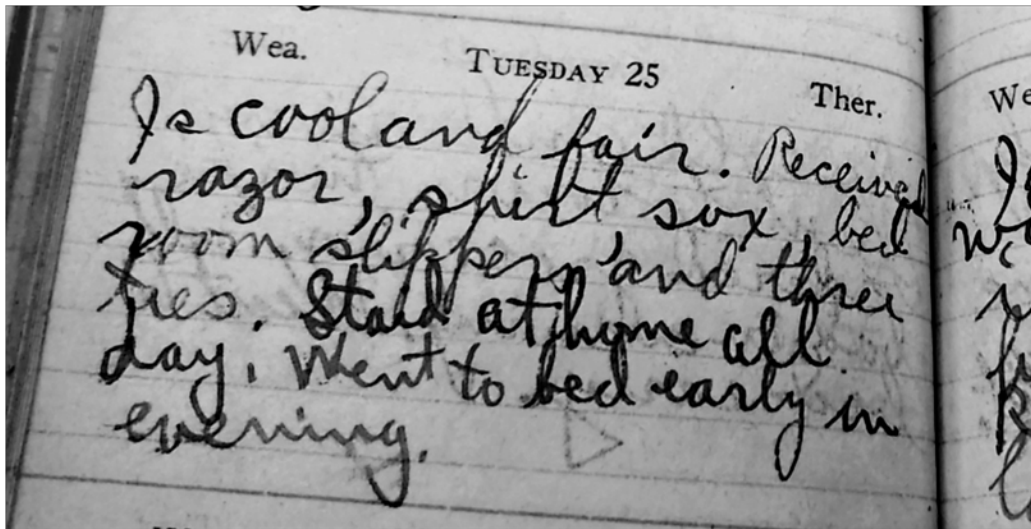 Wea. TUESDAY 25 Ther.
Is cool and fair. Received
razor, shirt sox, bed
room slippers, and three
ties. Staid at home all
day. Went to bed early in
evening.
We